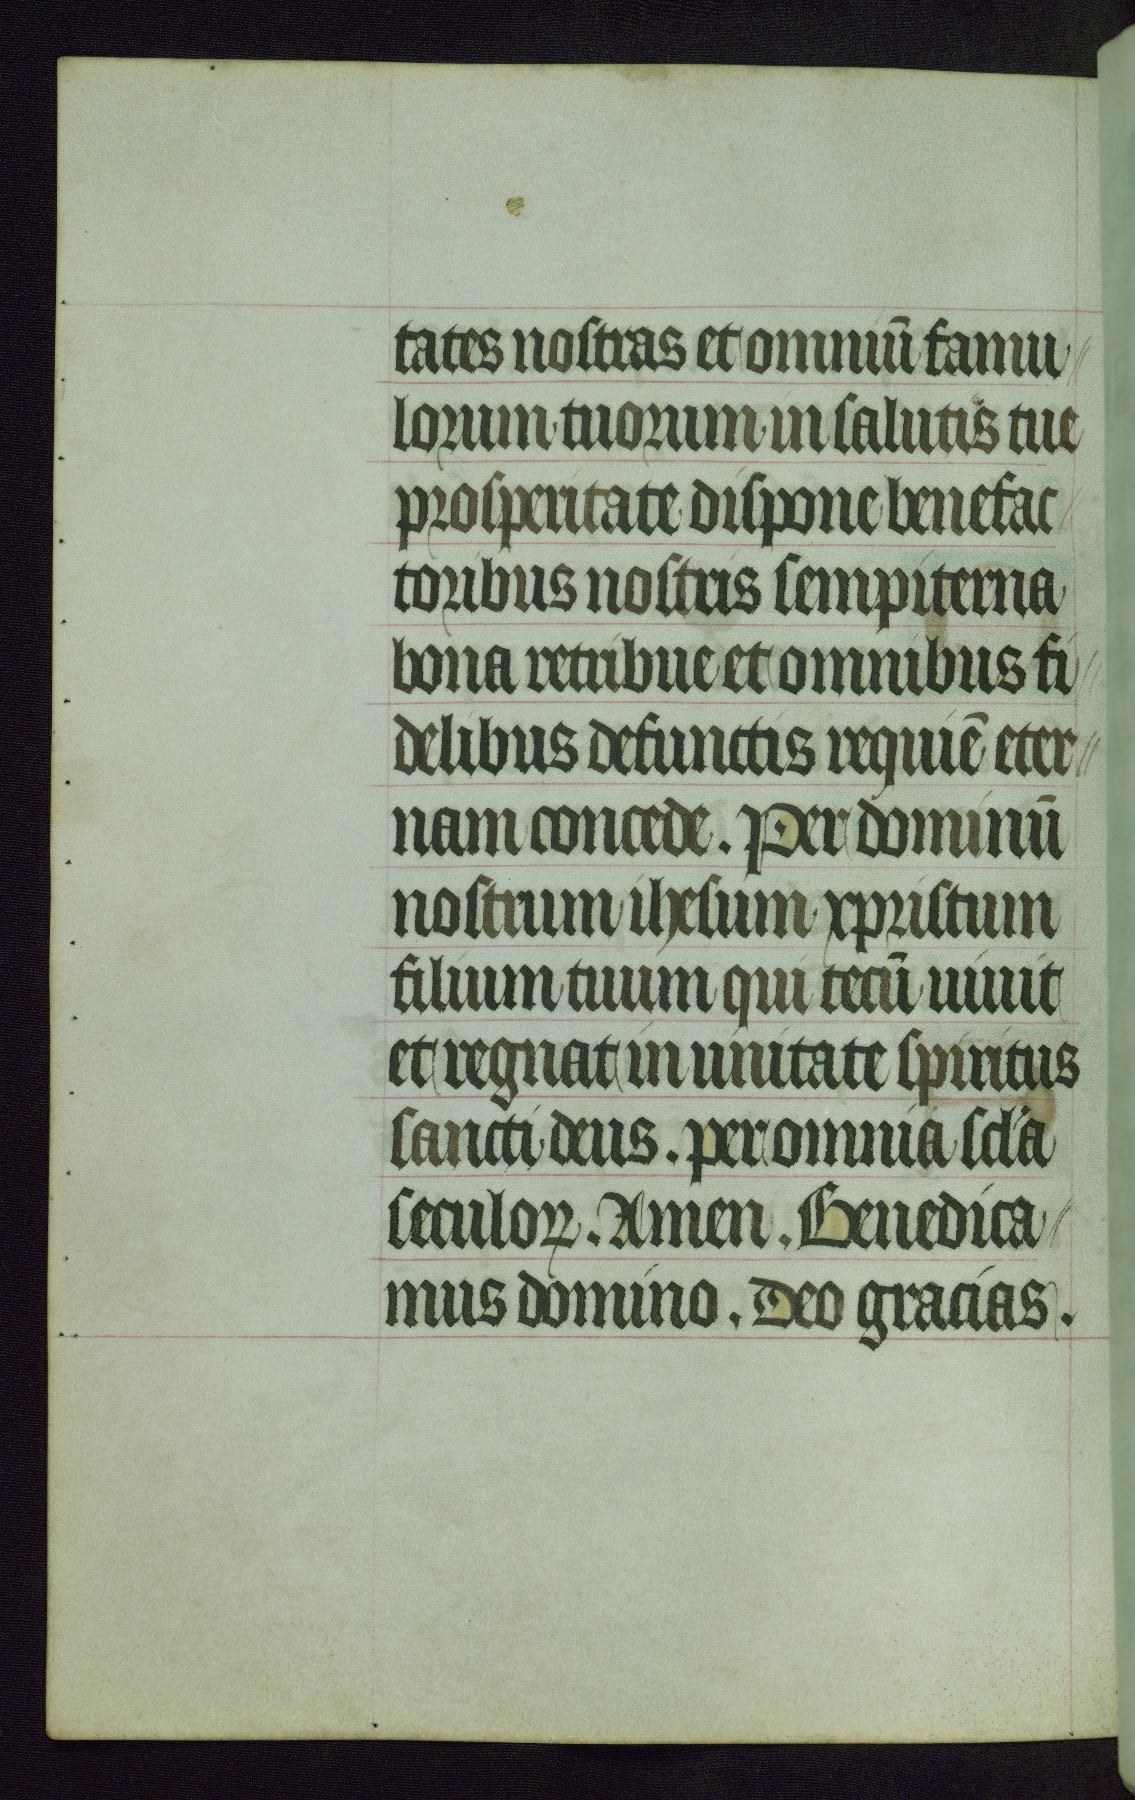 tates nostras et omniū famu
lorum tuorum in salutis tue
prosperitate dispone benefac
toribus nostris sempiterna
bona retribue et omnibus fi
delibus defunctis requiē eter
nam concede. Per dominū
nostrum ihesum xpristum
filium tuum qui tecū uiuit
et regnat in unitate spiritus
sancti deus. per omnia scl'a
seculoꝝ. Amen. Benedica
mus domino. Deo gracias.